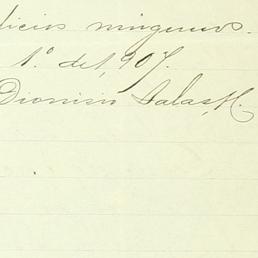 ningunos.
1.º de 1,907.
Dionisio Salas, H.